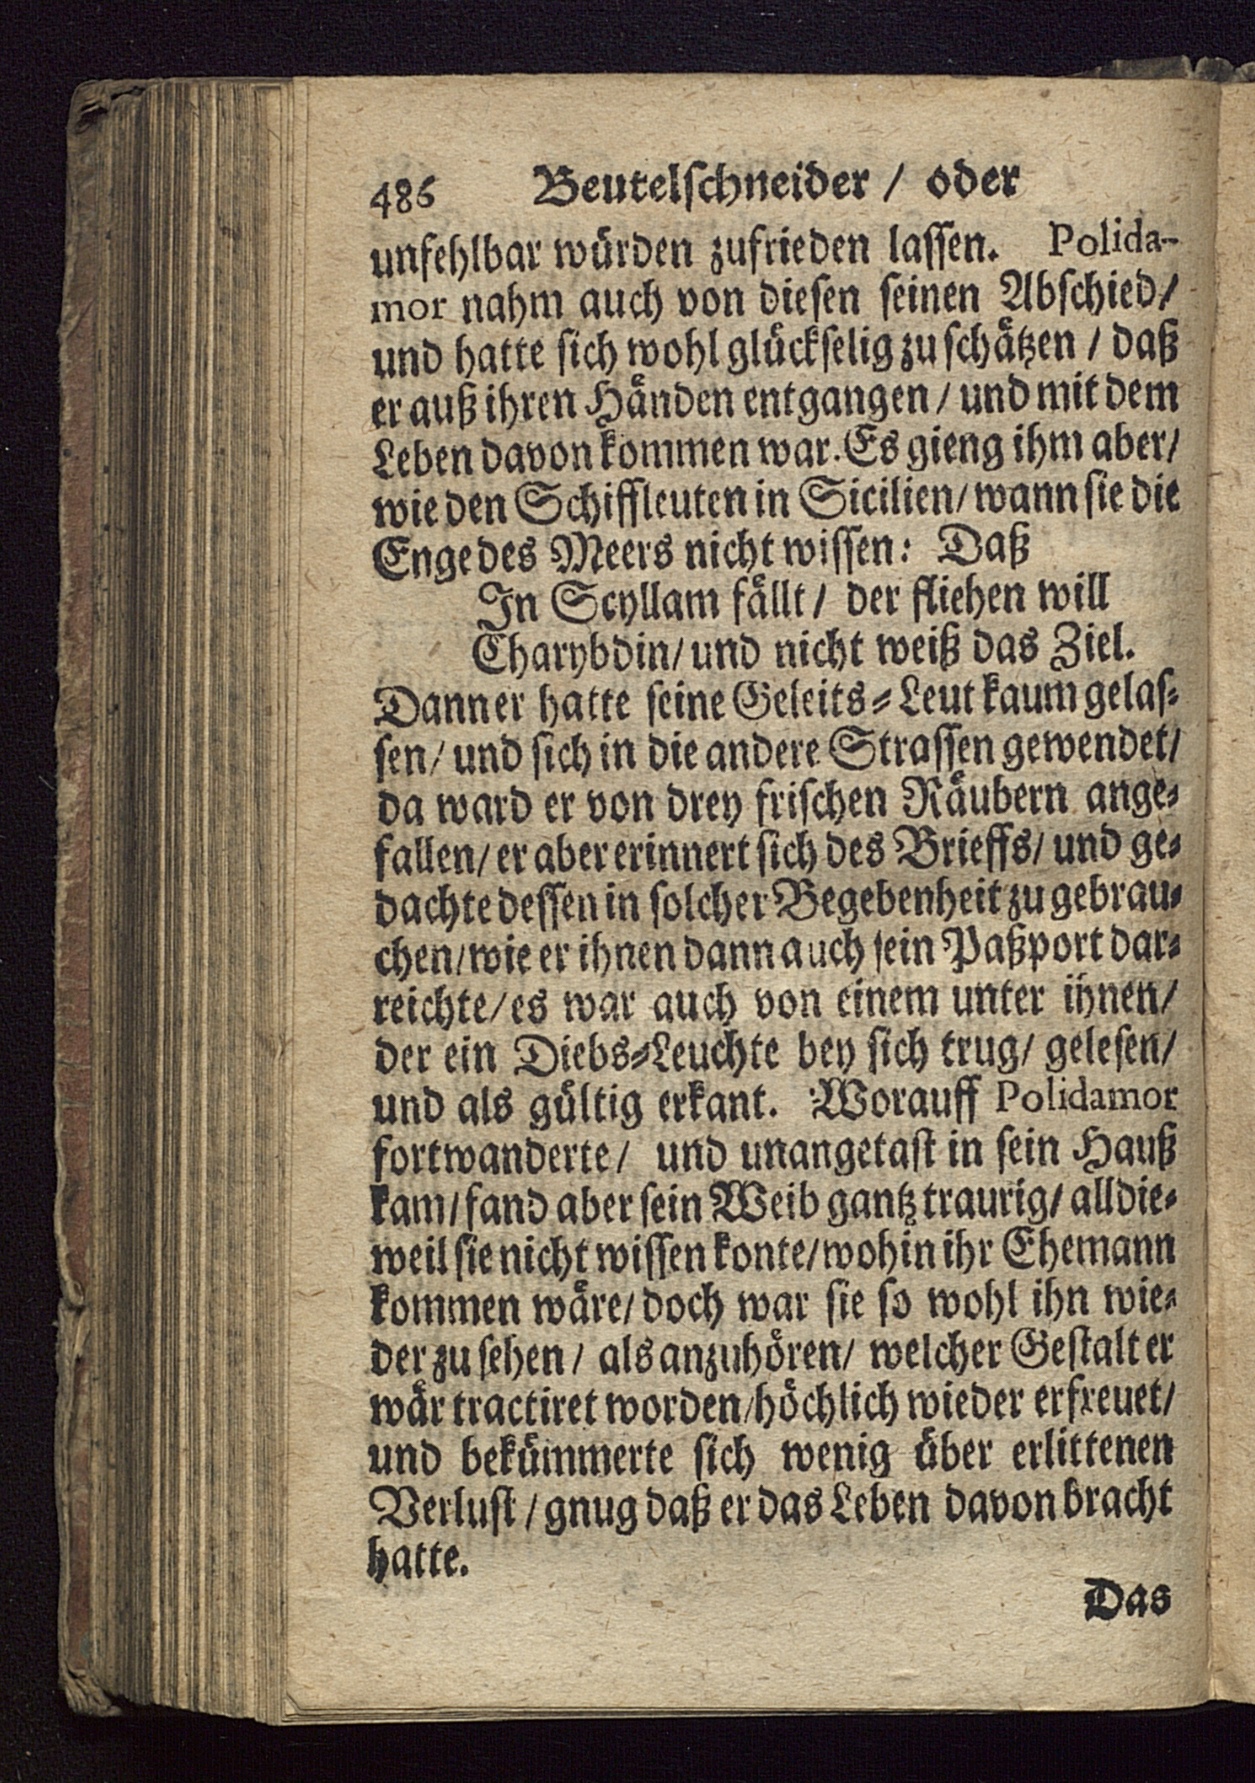 486 Beutelschneider / oder
unfehlbar würden zufrieden lassen. Polida-
mor nahm auch von diesen seinen Abschied/
und hatte sich wohl glückselig zu schätzen / daß
er auß ihren Händen entgangen / und mit dem
Leben davon kommen war. Es gieng ihm aber/
wie den Schiffleuten in Sicilien/ wann sie die
Enge des Meers nicht wissen: Daß
In Scyllam fällt / der fliehen will
Charybdin/ und nicht weiß das Ziel.
Dann er hatte seine Geleits-Leut kaum gelas-
sen/ und sich in die andere Strassen gewendet/
da ward er von drey frischen Räubern ange-
fallen/ er aber erinnert sich des Brieffs/ und ge-
dachte dessen in solcher Begebenheit zu gebrau-
chen/ wie er ihnen dann auch sein Paßport dar-
reichte/ es war auch von einem unter ihnen/
der ein Diebs-Leuchte bey sich trug/ gelesen/
und als gültig erkant. Worauff Polidamor
fortwanderte/ und unangetast in sein Hauß
kam/ fand aber sein Weib gantz traurig/ alldie-
weil sie nicht wissen konte/ wohin ihr Ehemann
kommen wäre/ doch war sie so wohl ihn wie-
der zu sehen / als anzuhören/ welcher Gestalt er
wär tractiret worden/ höchlich wieder erfreuet/
und bekümmerte sich wenig über erlittenen
Verlust / gnug daß er das Leben davon bracht
hatte.
Das